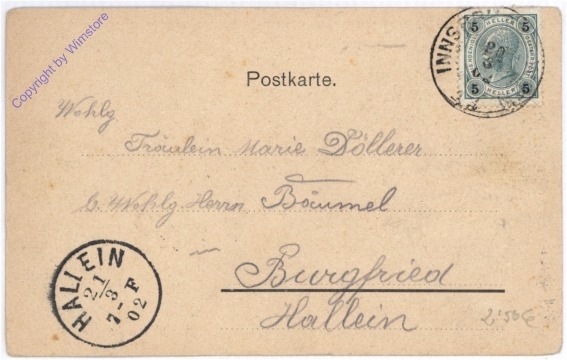 Copyright by Wimstore
INNSBRUCK
5 HELLER 5
5 HELLER 5
Postkarte.
Wohlg
Fräulein Marie Döllerer
b. Wohlg Herrn Bäumel
Burgfried
Hallein
HALLEIN
21/3
7-F
02
2'50€